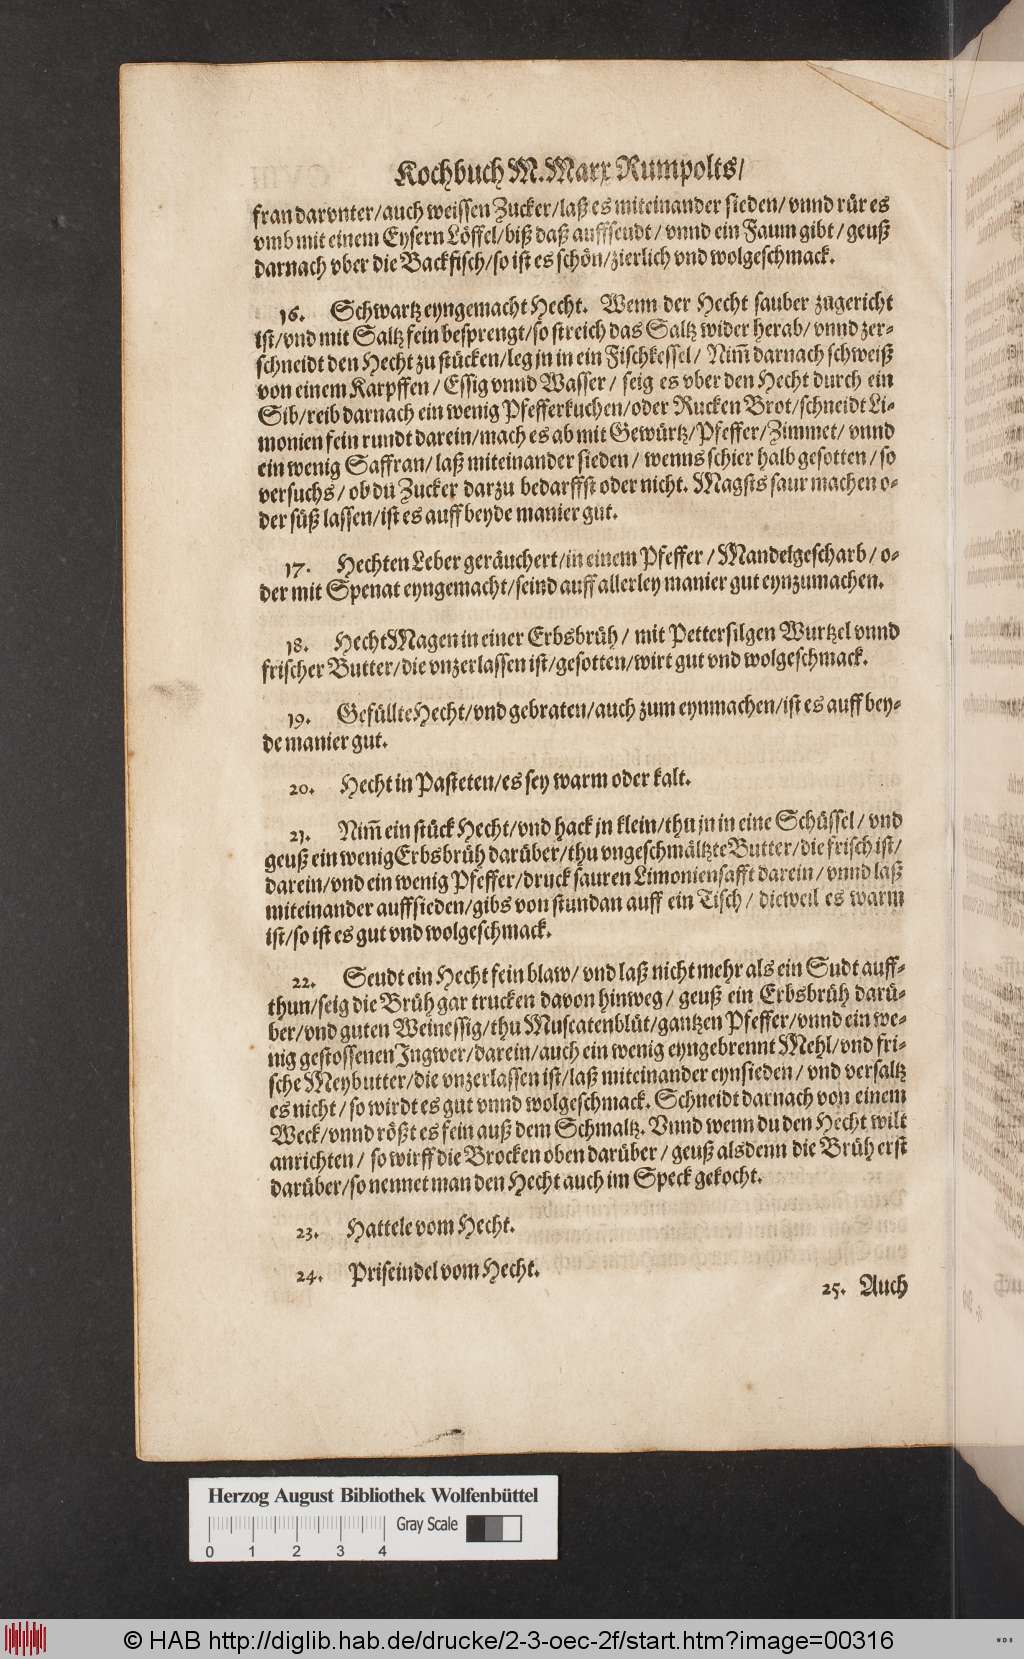 Kochbuch M. Marx Rumpolts/
fran darvnter/auch weissen Zucker/laß es miteinander sieden/ vnnd rür es
vmb mit einem Eysern Löffel/biß daß auffseudt/ vnnd ein Faum gibt/ geuß
darnach vber die Backfisch/so ist es schön/zierlich vnd wolgeschmack.
16. Schwartz eyngemacht Hecht. Wenn der Hecht sauber zugericht
ist/vnd mit Saltz fein besprengt/so streich das Saltz wider herab/ vnnd zer-
schneidt den Hecht zu stücken/leg jn in ein Fischkessel/ Nim̃ darnach schweiß
von einem Karpffen/ Essig vnnd Wasser/ seig es vber den Hecht durch ein
Sib/reib darnach ein wenig Pfefferkuchen/oder Rucken Brot/schneidt Li-
monien fein rundt darein/mach es ab mit Gewürtz/Pfeffer/Zimmet/ vnnd
ein wenig Saffran/ laß miteinander sieden/ wenns schier halb gesotten/ so
versuchs/ ob du Zucker darzu bedarffst oder nicht. Magsts saur machen o-
der süß lassen/ist es auff beyde manier gut.
17. Hechten Leber geräuchert/in einem Pfeffer/ Mandelgescharb/ o-
der mit Spenat eyngemacht/seind auff allerley manier gut eynzumachen.
18. Hecht Magen in einer Erbsbrüh/ mit Pettersilgen Wurtzel vnnd
frischer Butter/die vnzerlassen ist/gesotten/wirt gut vnd wolgeschmack.
19. Gefüllte Hecht/vnd gebraten/auch zum eynmachen/ist es auff bey-
de manier gut.
20. Hecht in Pasteten/es sey warm oder kalt.
21. Nim̃ ein stück Hecht/vnd hack jn klein/thu jn in eine Schüssel/ vnd
geuß ein wenig Erbsbrüh darüber/thu vngeschmältzte Butter/die frisch ist/
darein/vnd ein wenig Pfeffer/druck sauren Limoniensafft darein/ vnnd laß
miteinander auffsieden/gibs von stundan auff ein Tisch/ dieweil es warm
ist/so ist es gut vnd wolgeschmack.
22. Seudt ein Hecht fein blaw/ vnd laß nicht mehr als ein Sudt auff-
thun/seig die Brüh gar trucken davon hinweg/ geuß ein Erbsbrüh darü-
ber/vnd guten Weinessig/thu Muscatenblüt/gantzen Pfeffer/vnnd ein we-
nig gestossenen Jngwer/darein/auch ein wenig eyngebrennt Mehl/vnd fri-
sche Meybutter/die vnzerlassen ist/laß miteinander eynsieden/ vnd versaltz
es nicht/ so wirdt es gut vnnd wolgeschmack. Schneidt darnach von einem
Weck/vnnd rößt es fein auß dem Schmaltz. Vnnd wenn du den Hecht wilt
anrichten/ so wirff die Brocken oben darüber/ geuß alsdenn die Brüh erst
darüber/so nennet man den Hecht auch im Speck gekocht.
23. Hattele vom Hecht.
24. Priseindel vom Hecht.
25. Auch
Herzog August Bibliothek Wolfenbüttel
Gray Scale
0 1 2 3 4
© HAB http://diglib.hab.de/drucke/2-3-oec-2f/start.htm?image=00316